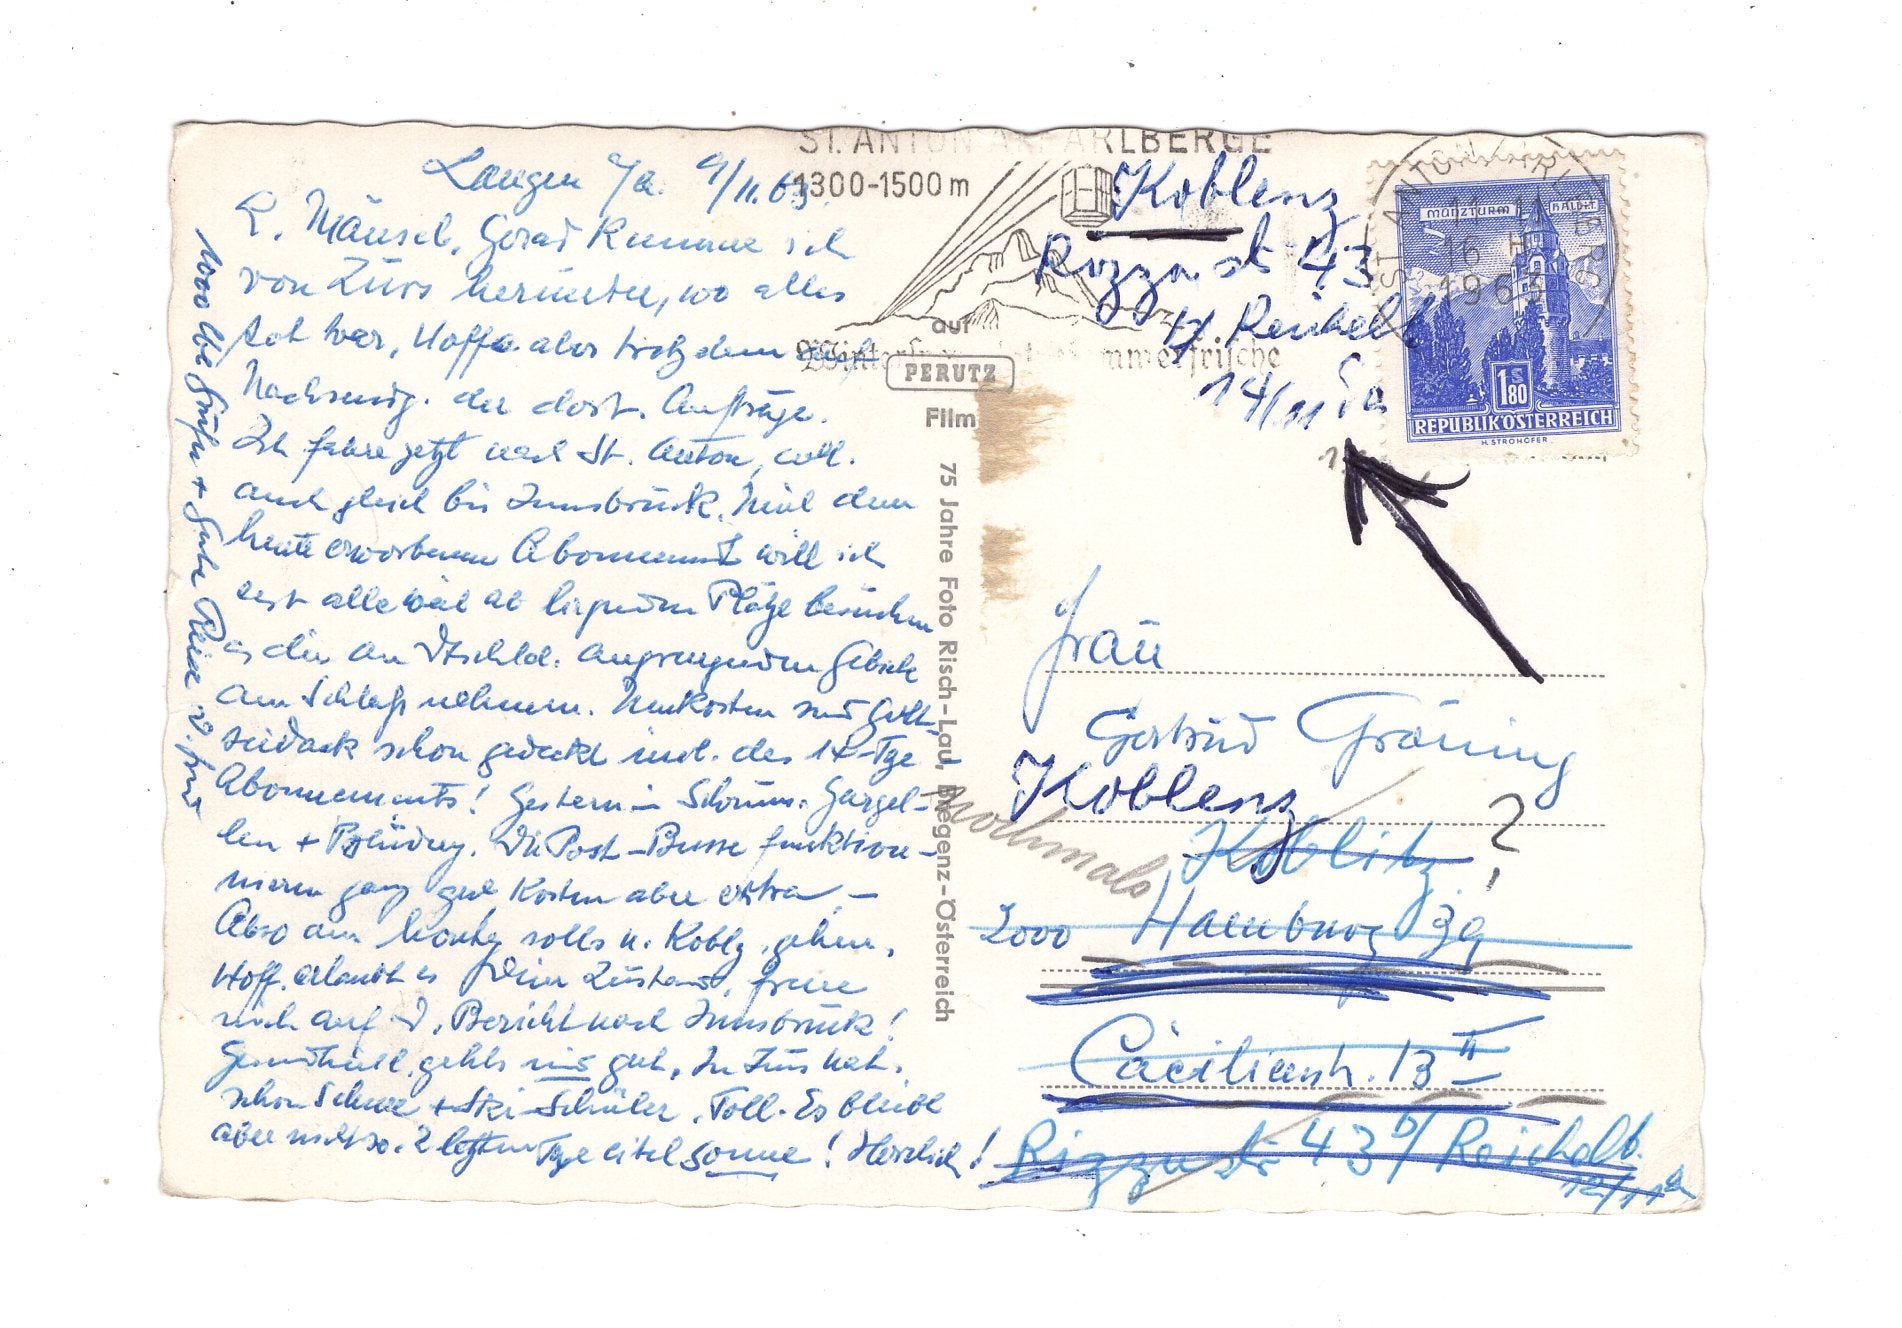 ST. ANTON AM ARLBERGE
1300-1500 m
Winterfrische Sommerfrische
ST. ANTON ARLBERG
11. 11
16 H
1963
MÜNZTURM HALL i.T.
1 S 80
REPUBLIK ÖSTERREICH
H. STROHOFER
auf
PERUTZ
Film
75 Jahre Foto Risch-Lau, Bregenz-Österreich
Langen a/A. 9/11.63.
L. Mäuseb. Gerad komme ich
von Zürs herunter, wo alles
tot war, Hoffe aber trotzdem auf
Nachsendg. der dort. Aufträge.
Ich fahre jetzt nach St. Anton, evtl.
auch gleich bis Innsbruck. Mit dem
heute erworbenen Abonnement will ich
erst alle weit ab liegenden Plätze besuchen
die an Dtschld. angrenzenden Gebiete
am Schluß nehmen. Unkosten sind Gott
seidank schon gedeckt incl. des 14-Tge
Abonnements! Gestern in Schruns, Gargel-
len + Bludenz. Die Post-Busse funktion-
nieren ganz gut kosten aber extra. -
Also am solls n. Koblz. gehen.
Hoff. erlaubt es Dein Zustand, freue
mich auf D. Bericht nach Innsbruck!
Gesundheitl. gehts mir gut. In Zürs hat.
schon Schnee + Ski-Schüler. Toll. Es bleibt
aber nicht so. 2 letzten Tge eitel Sonne! Herzlich!
1000 lbe Grüße + Gute Reise
Koblenz
Rizzastr 43
b/ Reichelt
14/11
Frau
Gertrud Gröning
Koblenz
Koblitz ?
nochmals
2000 Hamburg 39
Cäcilienstr. 13 II
Rizzastr 43 b/ Reichelt.
12/11